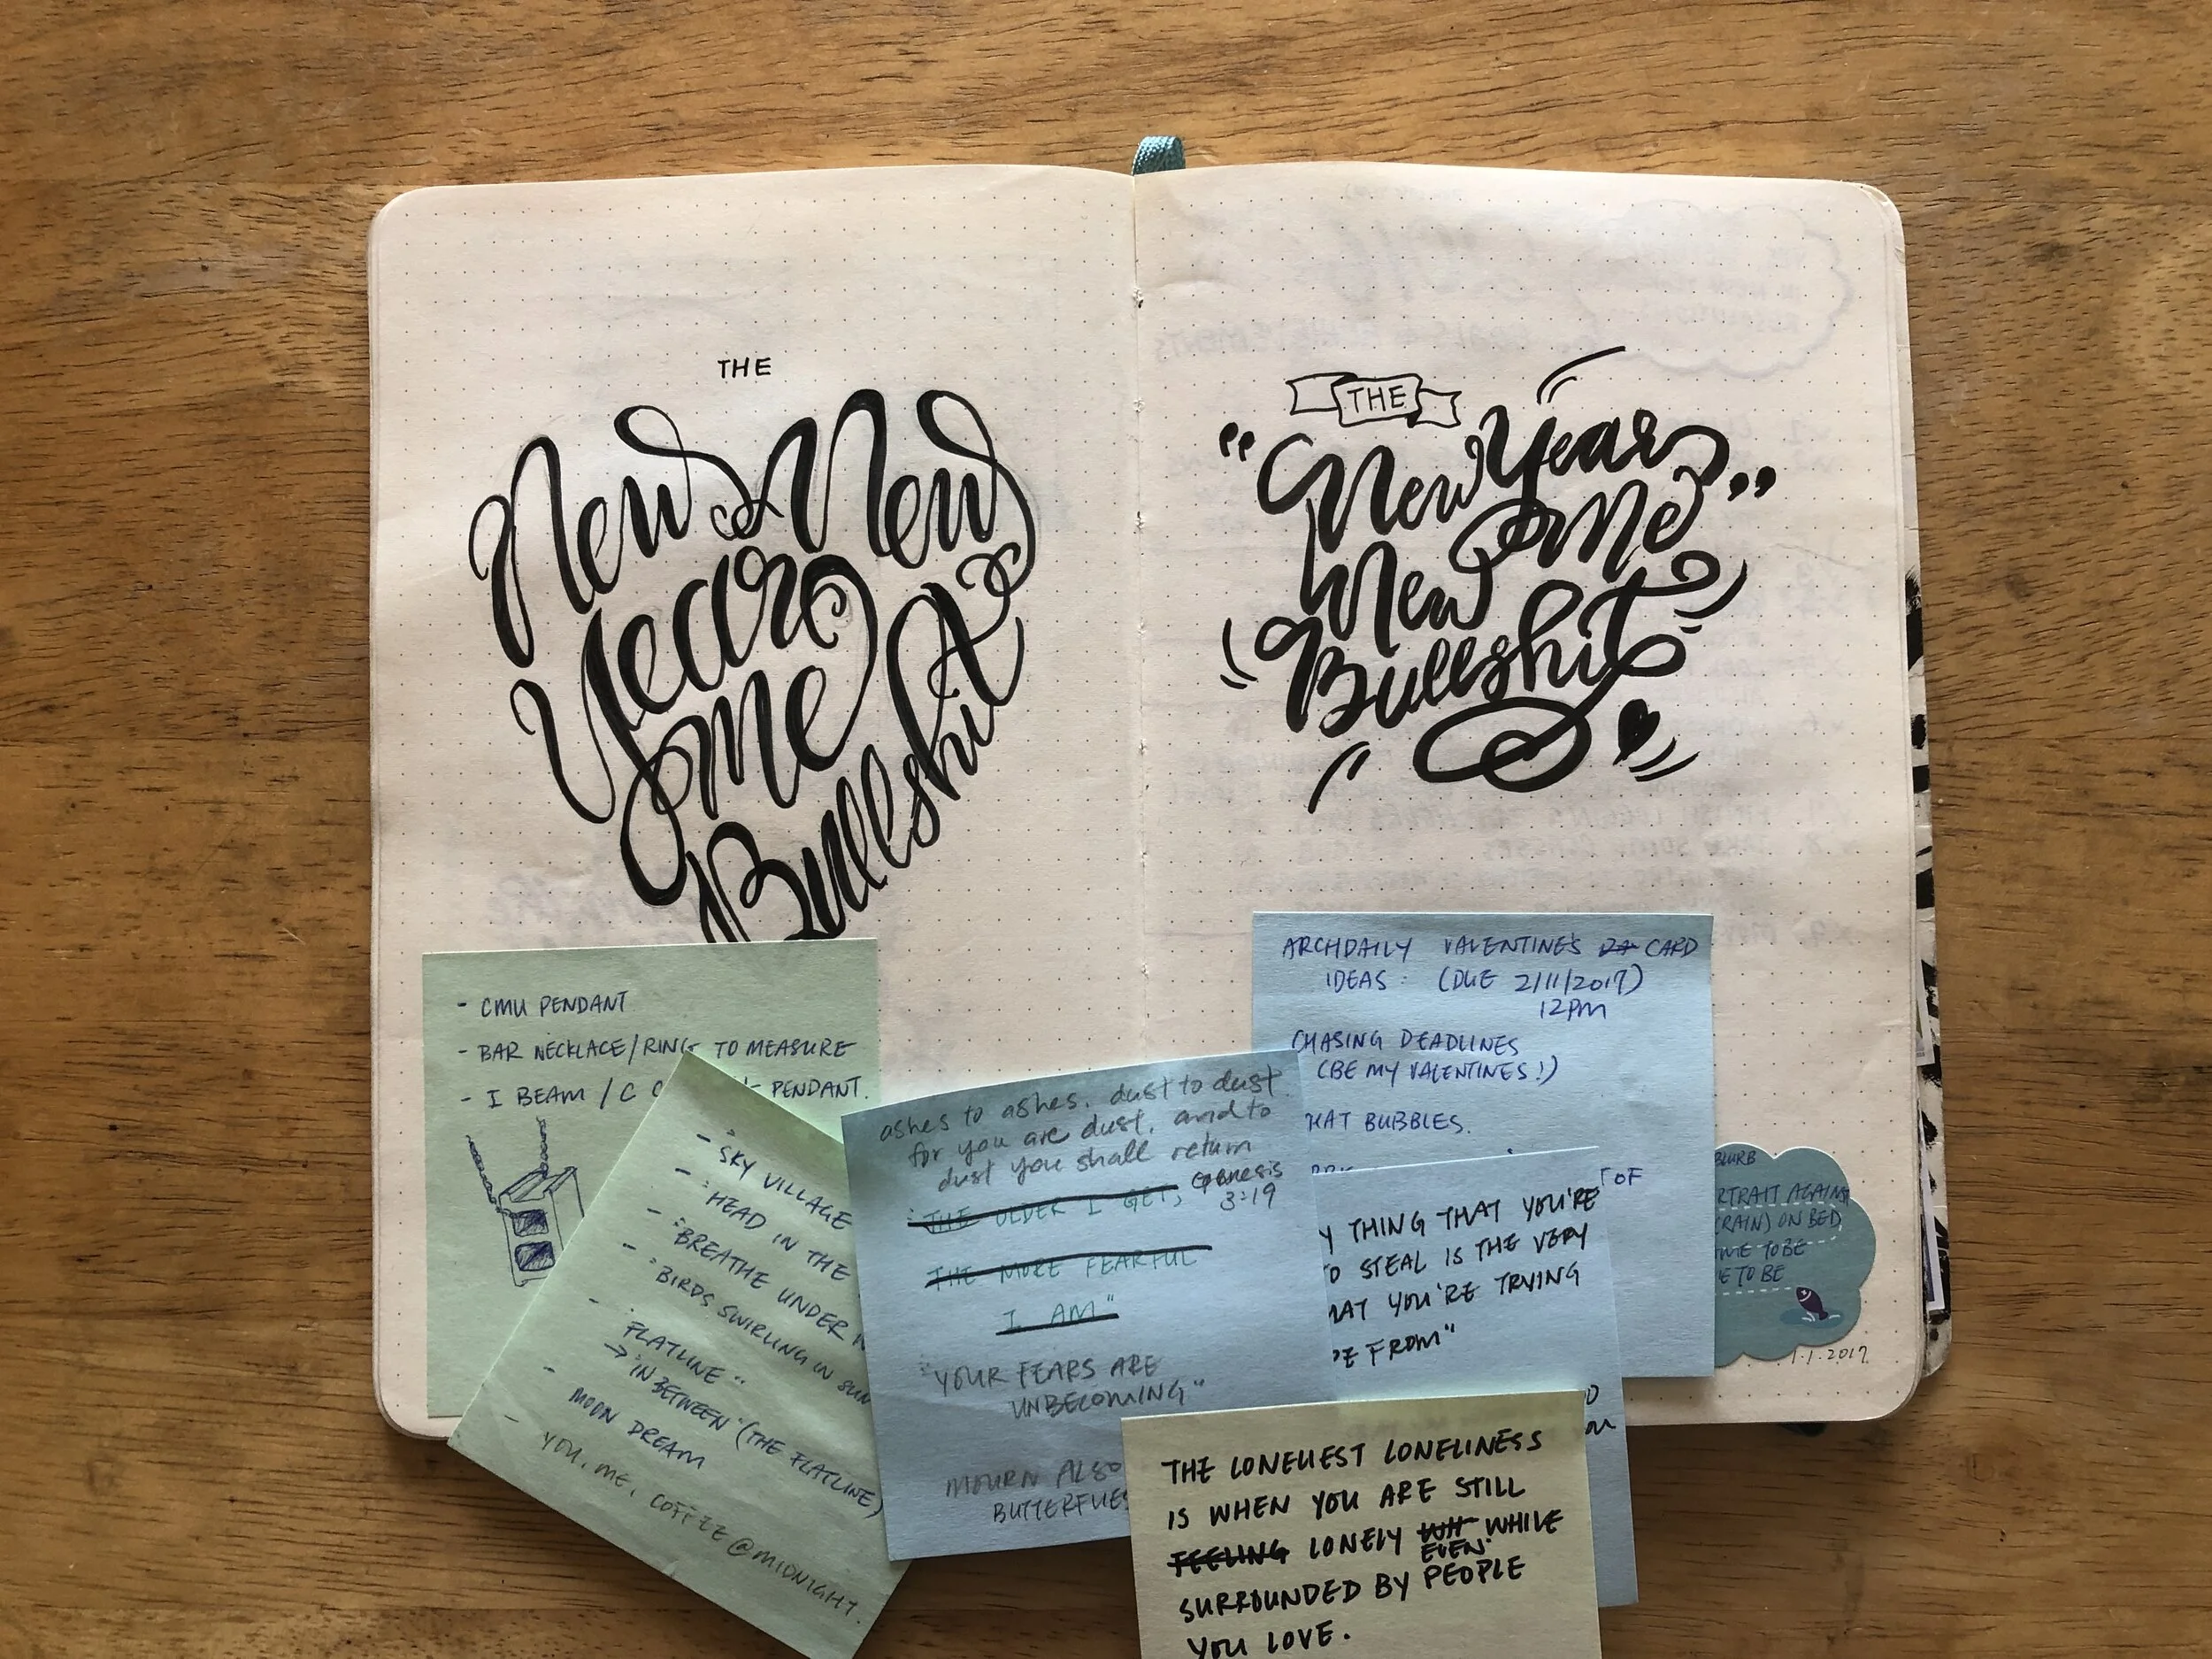 THE
New New
Year
Me
Bullshit
THE
"New Year
New Me"
New
Bullshit
- CMU PENDANT
- BAR NECKLACE/RING TO MEASURE
- I BEAM / C PENDANT.
- "SKY VILLAGE
- "HEAD IN THE
- "BREATHE UNDER
- "BIRDS SWIRLING IN SUN
- "FLATLINE"
→ "IN BETWEEN" (THE FLATLINE)
- MOON DREAM
- YOU, ME, COFFEE @MIDNIGHT.
ashes to ashes, dust to dust
for you are dust, and to
dust you shall return
Genesis
3:19
"THE OLDER I GET,
THE MORE FEARFUL
I AM"
"YOUR FEARS ARE
UNBECOMING"
MOURN ALSO
BUTTERFLIES
ARCHDAILY VALENTINE'S CARD
IDEAS: (DUE 2/11/2017)
12PM
CHASING DEADLINES
(BE MY VALENTINES!)
HAT BUBBLES.
OF
Y THING THAT YOU'RE
O STEAL IS THE VERY
HAT YOU'RE TRYING
E FROM"
THE LONELIEST LONELINESS
IS WHEN YOU ARE STILL
FEELING LONELY WH WHILE
EVEN
SURROUNDED BY PEOPLE
YOU LOVE.
BLURB
RTRAIT AGAINST
(RAIN) ON BED,
TO BE
E TO BE
1.1.2017